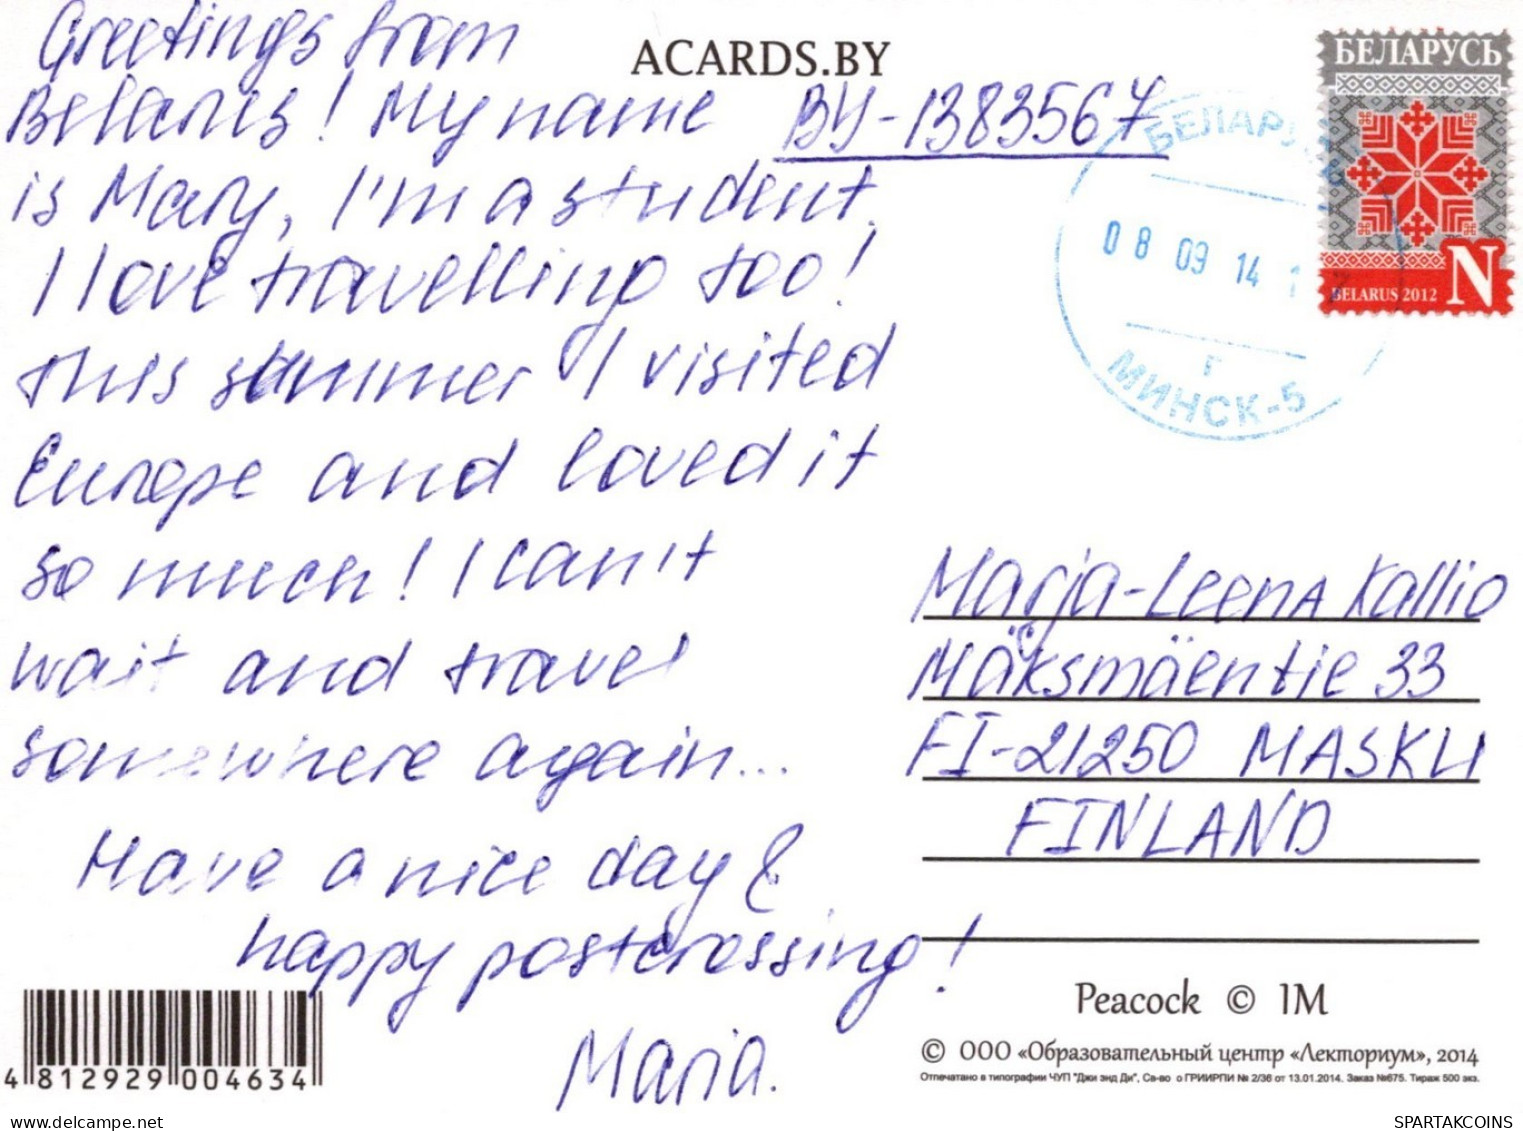 Greetings from
Belarus! My name
is Mary, I'm a student.
I love travelling too!
This summer I visited
Europe and loved it
so much! I can't
wait and travel
somewhere again...
Have a nice day &
happy postcrossing!
Maria.
ACARDS.BY
BY-1383567
БЕЛАРУСЬ
BELARUS 2012 N
БЕЛАРУСЬ
08 09 14 1
г
МИНСК-5
Marja-Leena Kallio
Mäksmäentie 33
FI-21250 MASKU
FINLAND
Peacock © IM
© ООО «Образовательный центр «Лекториум», 2014
Отпечатано в типографии ЧУП "Джи энд Ди", Св-во о ГРИИРПИ № 2/36 от 13.01.2014. Заказ №675. Тираж 500 экз.
4 812929 004634
www.delcampe.net
SPARTAKCOINS